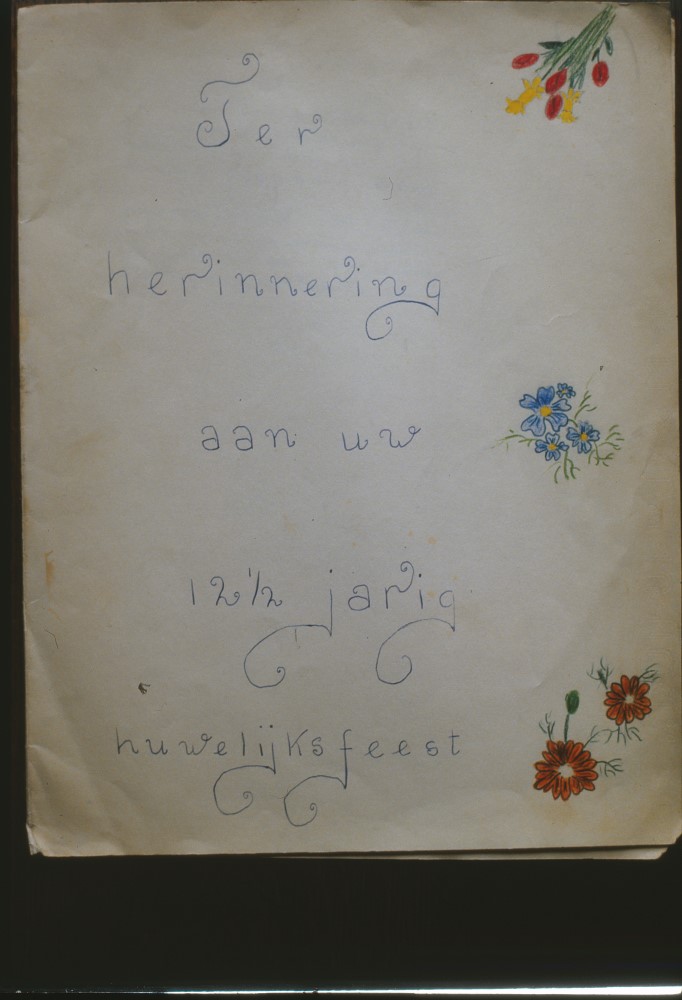 Ter
herinnering
aan uw
12½ jarig
huwelijksfeest